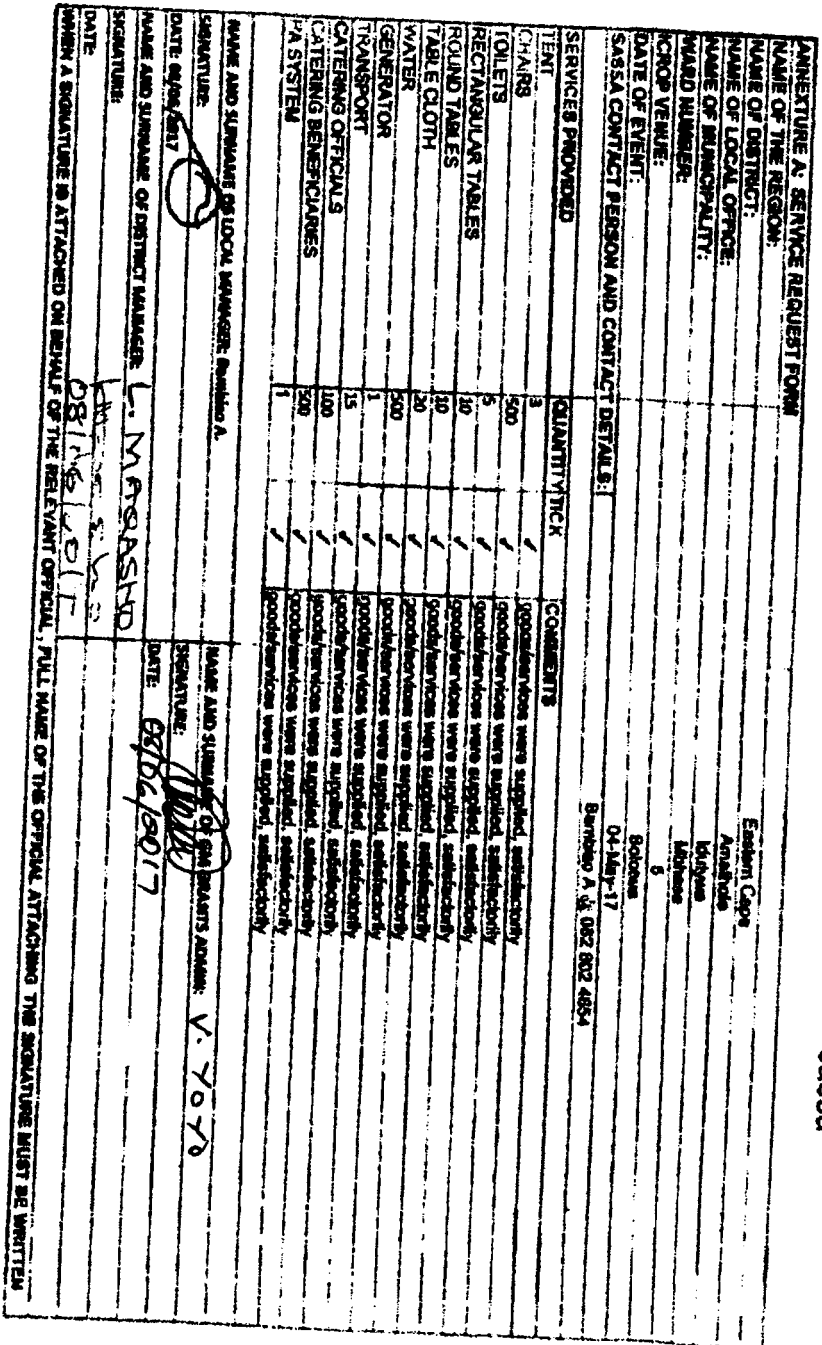 ANNEXTURE A: SERVICE REQUEST FORM
NAME OF THE REGION: Eastern Cape
NAME OF DISTRICT: Amathole
NAME OF LOCAL OFFICE: Idutywa
NAME OF MUNICIPALITY: Mbhase
WARD NUMBER: 5
ICROP VENUE:
DATE OF EVENT: 04-May-17
SASSA CONTACT PERSON AND CONTACT DETAILS: A 082 802 4654
SERVICES PROVIDED QUANTITY TICK COMMENTS
TENT 3 ✓ goods/services were supplied, satisfactorily
CHAIRS 500 ✓ goods/services were supplied, satisfactorily
TOILETS 5 ✓ goods/services were supplied, satisfactorily
RECTANGULAR TABLES 10 ✓ goods/services were supplied, satisfactorily
ROUND TABLES 10 ✓ goods/services were supplied, satisfactorily
TABLE CLOTH 20 ✓ goods/services were supplied, satisfactorily
WATER 500 ✓ goods/services were supplied, satisfactorily
GENERATOR 1 ✓ goods/services were supplied, satisfactorily
TRANSPORT 15 ✓ goods/services were supplied, satisfactorily
CATERING OFFICIALS 100 ✓ goods/services were supplied, satisfactorily
CATERING BENEFICIARIES 500 ✓ goods/services were supplied, satisfactorily
PA SYSTEM 1 ✓ goods/services were supplied, satisfactorily
NAME AND SURNAME OF LOCAL MANAGER: A. NAME AND SURNAME OF GM GRANTS ADMIN: V. YOYO
SIGNATURE: SIGNATURE:
DATE: 08/06/2017 DATE: 08/06/2017
NAME AND SURNAME OF DISTRICT MANAGER: L. MAQASHO
SIGNATURE:
DATE:
WHEN A SIGNATURE IS ATTACHED ON BEHALF OF THE RELEVANT OFFICIAL, FULL NAME OF THE OFFICIAL ATTACHING THE SIGNATURE MUST BE WRITTEN